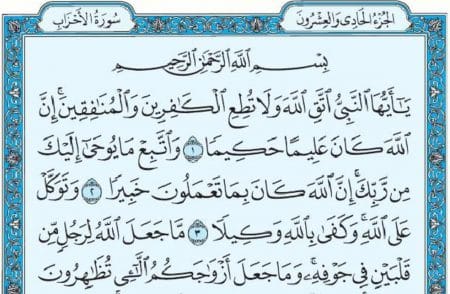 الجزء الحادى والعشرون
سورة الأحزاب
بِسْمِ ٱللَّهِ ٱلرَّحْمَٰنِ ٱلرَّحِيمِ
يَـٰٓأَيُّهَا ٱلنَّبِىُّ ٱتَّقِ ٱللَّهَ وَلَا تُطِعِ ٱلْكَـٰفِرِينَ وَٱلْمُنَـٰفِقِينَۗ إِنَّ
ٱللَّهَ كَانَ عَلِيمًا حَكِيمًا ١ وَٱتَّبِعْ مَا يُوحَىٰٓ إِلَيْكَ
مِن رَّبِّكَۚ إِنَّ ٱللَّهَ كَانَ بِمَا تَعْمَلُونَ خَبِيرًا ٢ وَتَوَكَّلْ
عَلَى ٱللَّهِۚ وَكَفَىٰ بِٱللَّهِ وَكِيلًا ٣ مَّا جَعَلَ ٱللَّهُ لِرَجُلٍ مِّن
قَلْبَيْنِ فِى جَوْفِهِۦۚ وَمَا جَعَلَ أَزْوَٰجَكُمُ ٱلَّـٰٓـِٔى تُظَـٰهِرُونَ